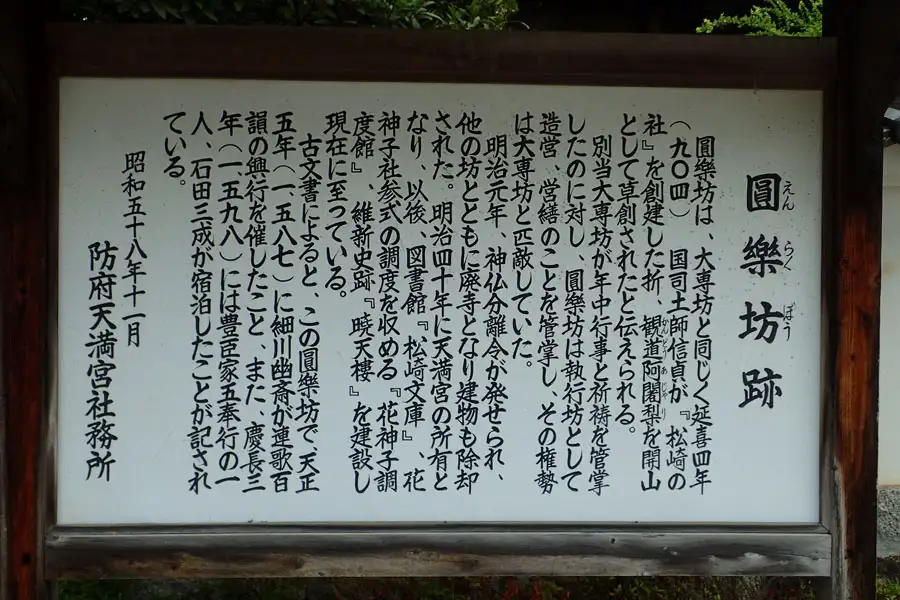 圓樂坊跡
えんらくぼう
圓樂坊は、大専坊と同じく延喜四年
(九〇四) 国司土師信貞が『松崎の
社』を創建した折、観道阿闍梨を開山
かんどうあじゃり
として草創されたと伝えられる。
別当大専坊が年中行事と祈祷を管掌
したのに対し、圓樂坊は執行坊として
造営、営繕のことを管掌し、その権勢
は大専坊と匹敵していた。
明治元年、神仏分離令が発せられ、
他の坊とともに廃寺となり建物も除却
された。明治四十年に天満宮の所有と
なり、以後、図書館『松崎文庫』、花
神子社参式の調度を収める『花神子調
度館』、維新史跡『暁天樓』を建設し
現在に至っている。
古文書によると、この圓樂坊で、天正
五年(一五八七)に細川幽斎が連歌百
韻の興行を催したこと、また、慶長三
年(一五九八)には豊臣家五奉行の一
人、石田三成が宿泊したことが記され
ている。
昭和五十八年十一月
防府天満宮社務所